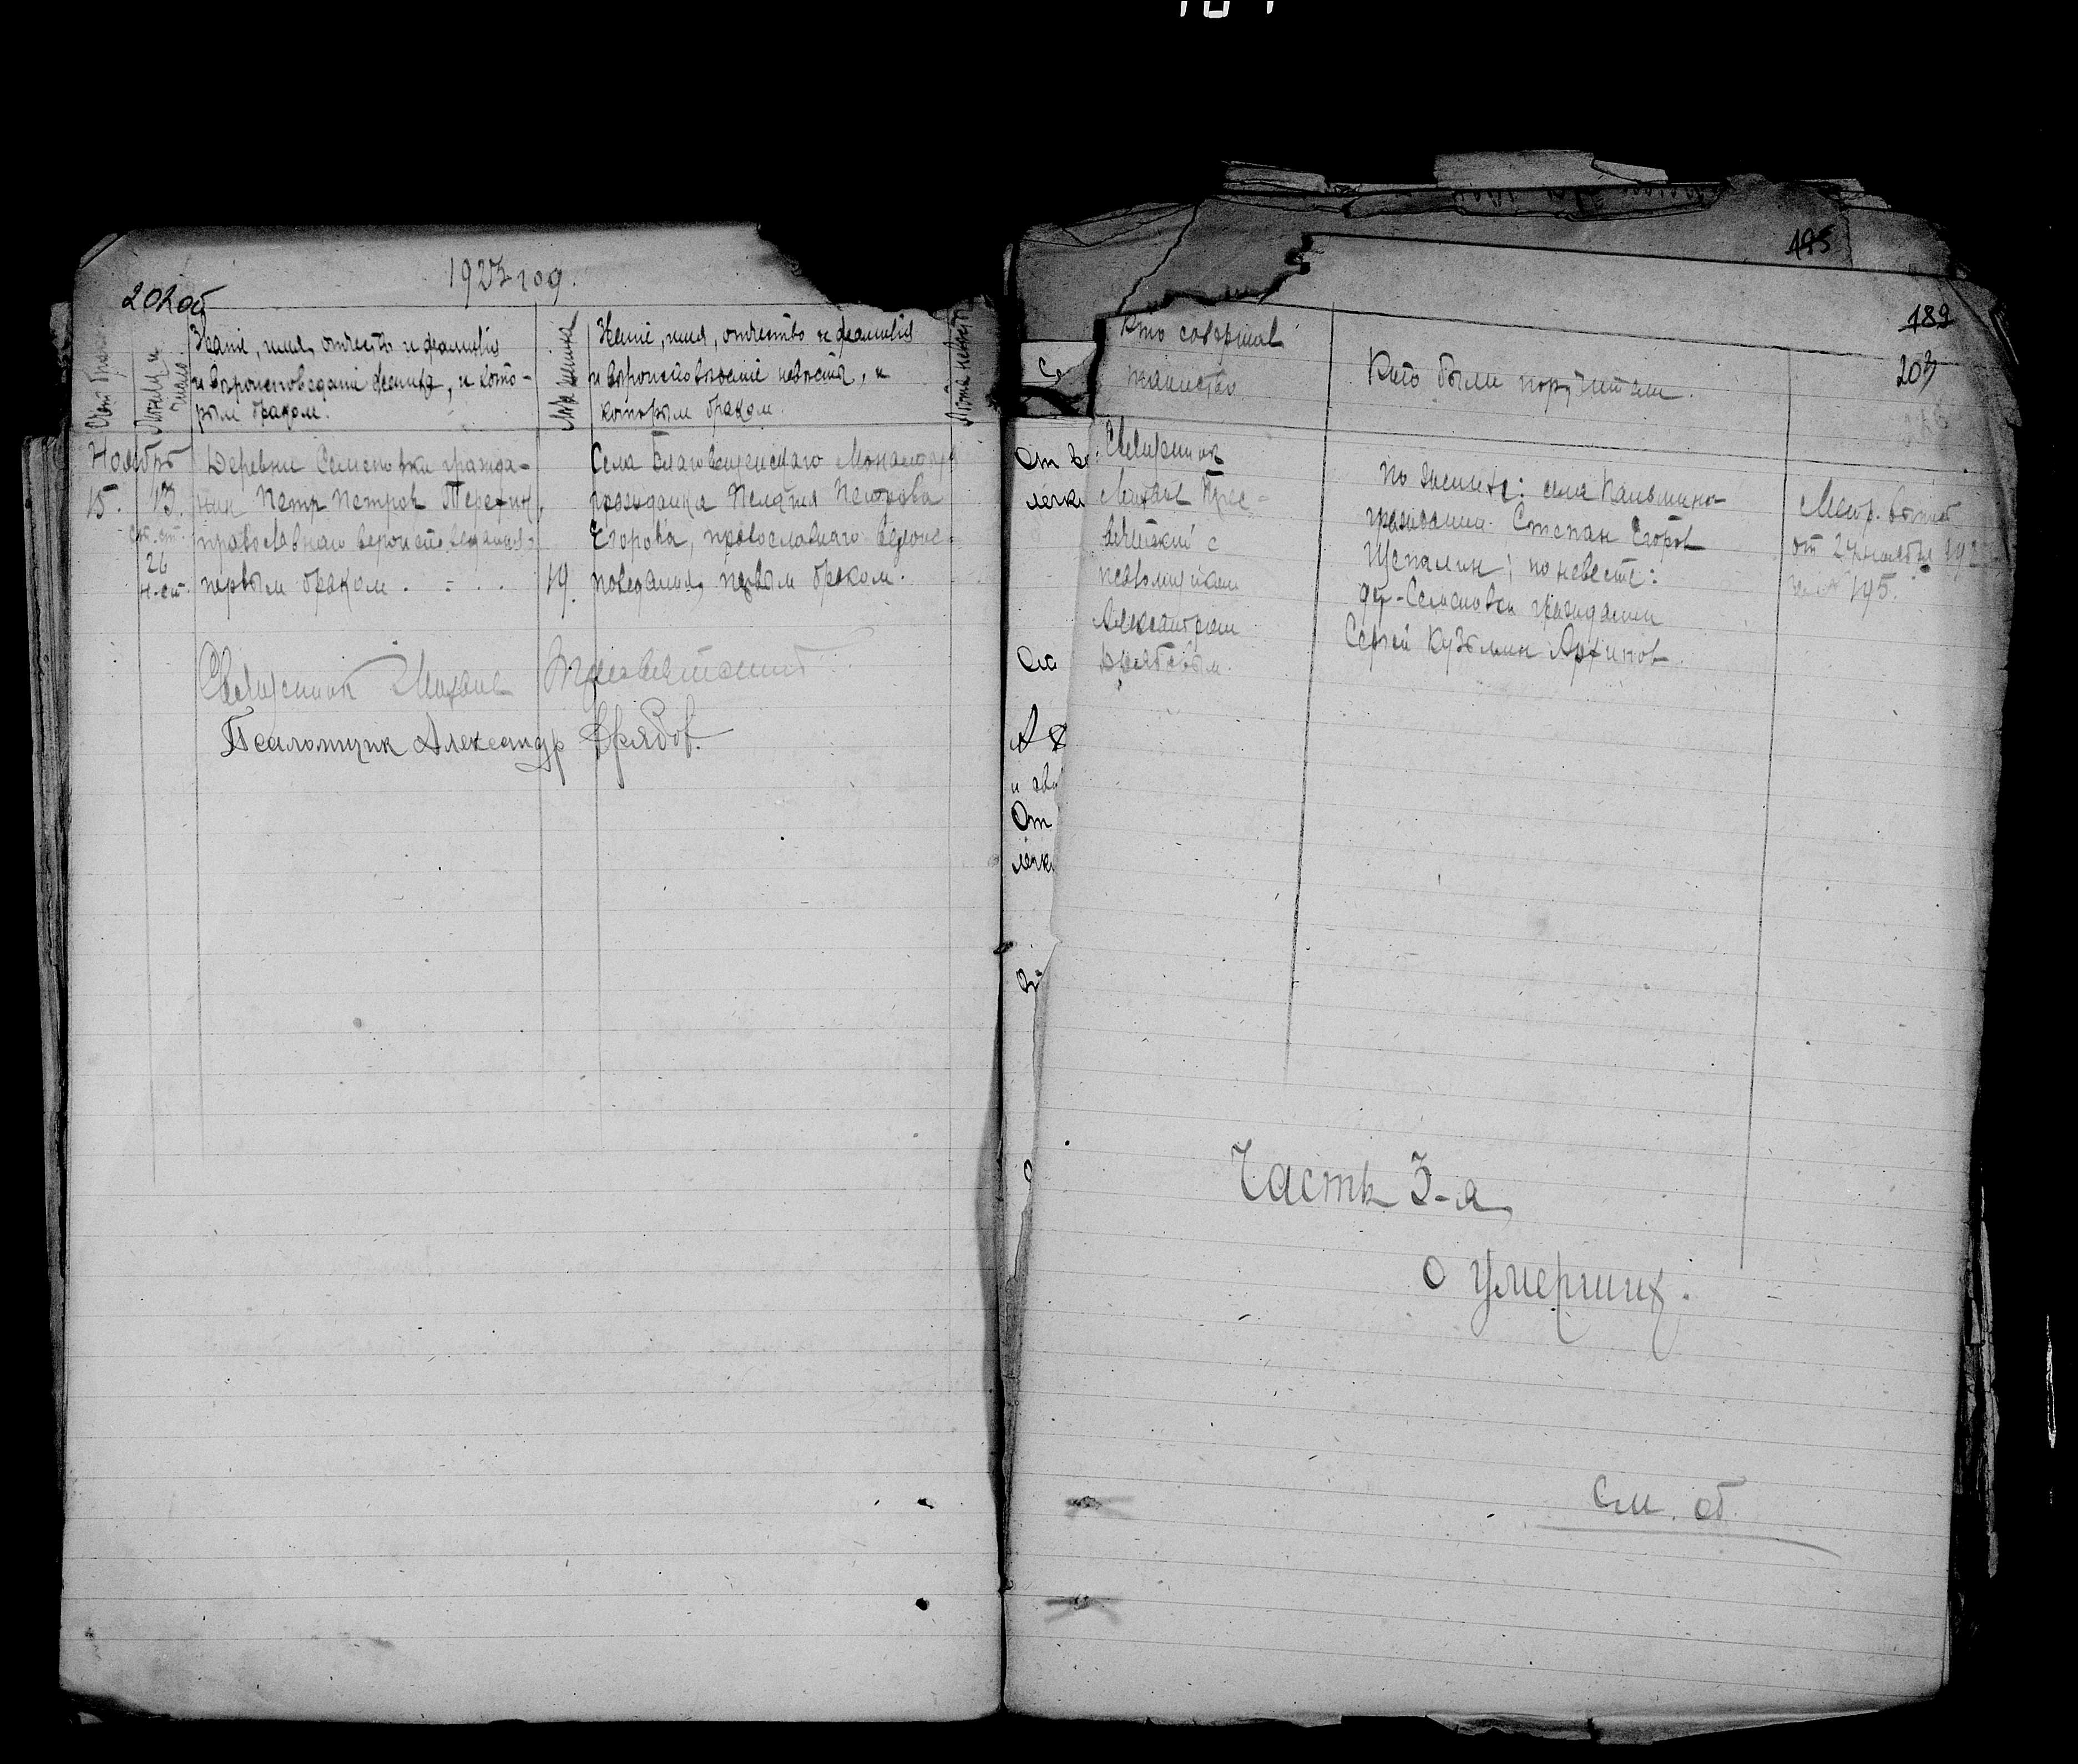 202об
1923 год.
Счет браков
Месяц и число
Званіе, имя, отчество и фамилія
и вероисповеданіе жениха, и кото-
рым браком.
Лета жениха
Званіе, имя, отчество и фамилія
и вероисповеданіе невесты, и
которым браком.
Лета невесты
Ноябрь
15.
13.
ст. ст.
26
н. ст.
Деревни Семеновки гражда-
нин Петр Петров Терехин,
православнаго вероисповедания,
первым браком.
19.
Села Благовещенскаго
гражданка Пелагия Петрова
Егорова, православнаго вероис-
поведания, первым браком.
Священник Михаил
Псаломщик Александр
195
189
203
Кто совершал
таинство
Кто были поручители.
Священник
Михаил
с
псаломщиком
Александром
по жениху: села
гражданин Степан Егоров
Щепалин; по невесте:
дер. Семеновки гражданин
Сергей Кузьмин Архипов.
от 24 ноября 192
за № 195.
Часть 3-я
о умерших.
См. об